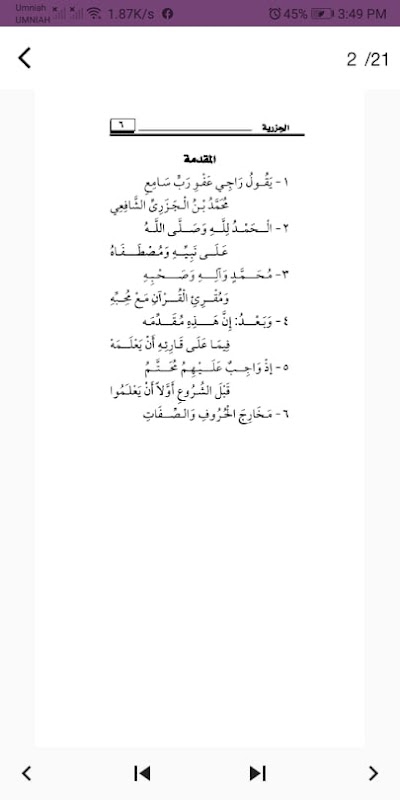 Umniah
UMNIAH
1.87K/s
45%
3:49 PM
2 /21
الجزرية
٦
المقدمة
١- يَقُولُ رَاجِي عَفْوِ رَبٍّ سَامِعِ
مُحَمَّدُ بْنُ الْجَزَرِيِّ الشَّافِعِي
٢- الْحَمْدُ لِلَّهِ وَصَلَّى اللَّهُ
عَلَى نَبِيِّهِ وَمُصْطَفَاهُ
٣- مُحَمَّدٍ وَآلِهِ وَصَحْبِهِ
وَمُقْرِئِ الْقُرْآنِ مَعْ مُحِبِّهِ
٤- وَبَعْدُ: إِنَّ هَذِهِ مُقَدِّمَه
فِيمَا عَلَى قَارِئِهِ أَنْ يَعْلَمَهْ
٥- إذْ وَاجِبٌ عَلَيْهِمُ مُحَتَّمُ
قَبْلَ الشُّرُوعِ أَوَّلاً أَنْ يَعْلَمُوا
٦- مَخَارِجَ الْحُرُوفِ وَالصِّفَاتِ